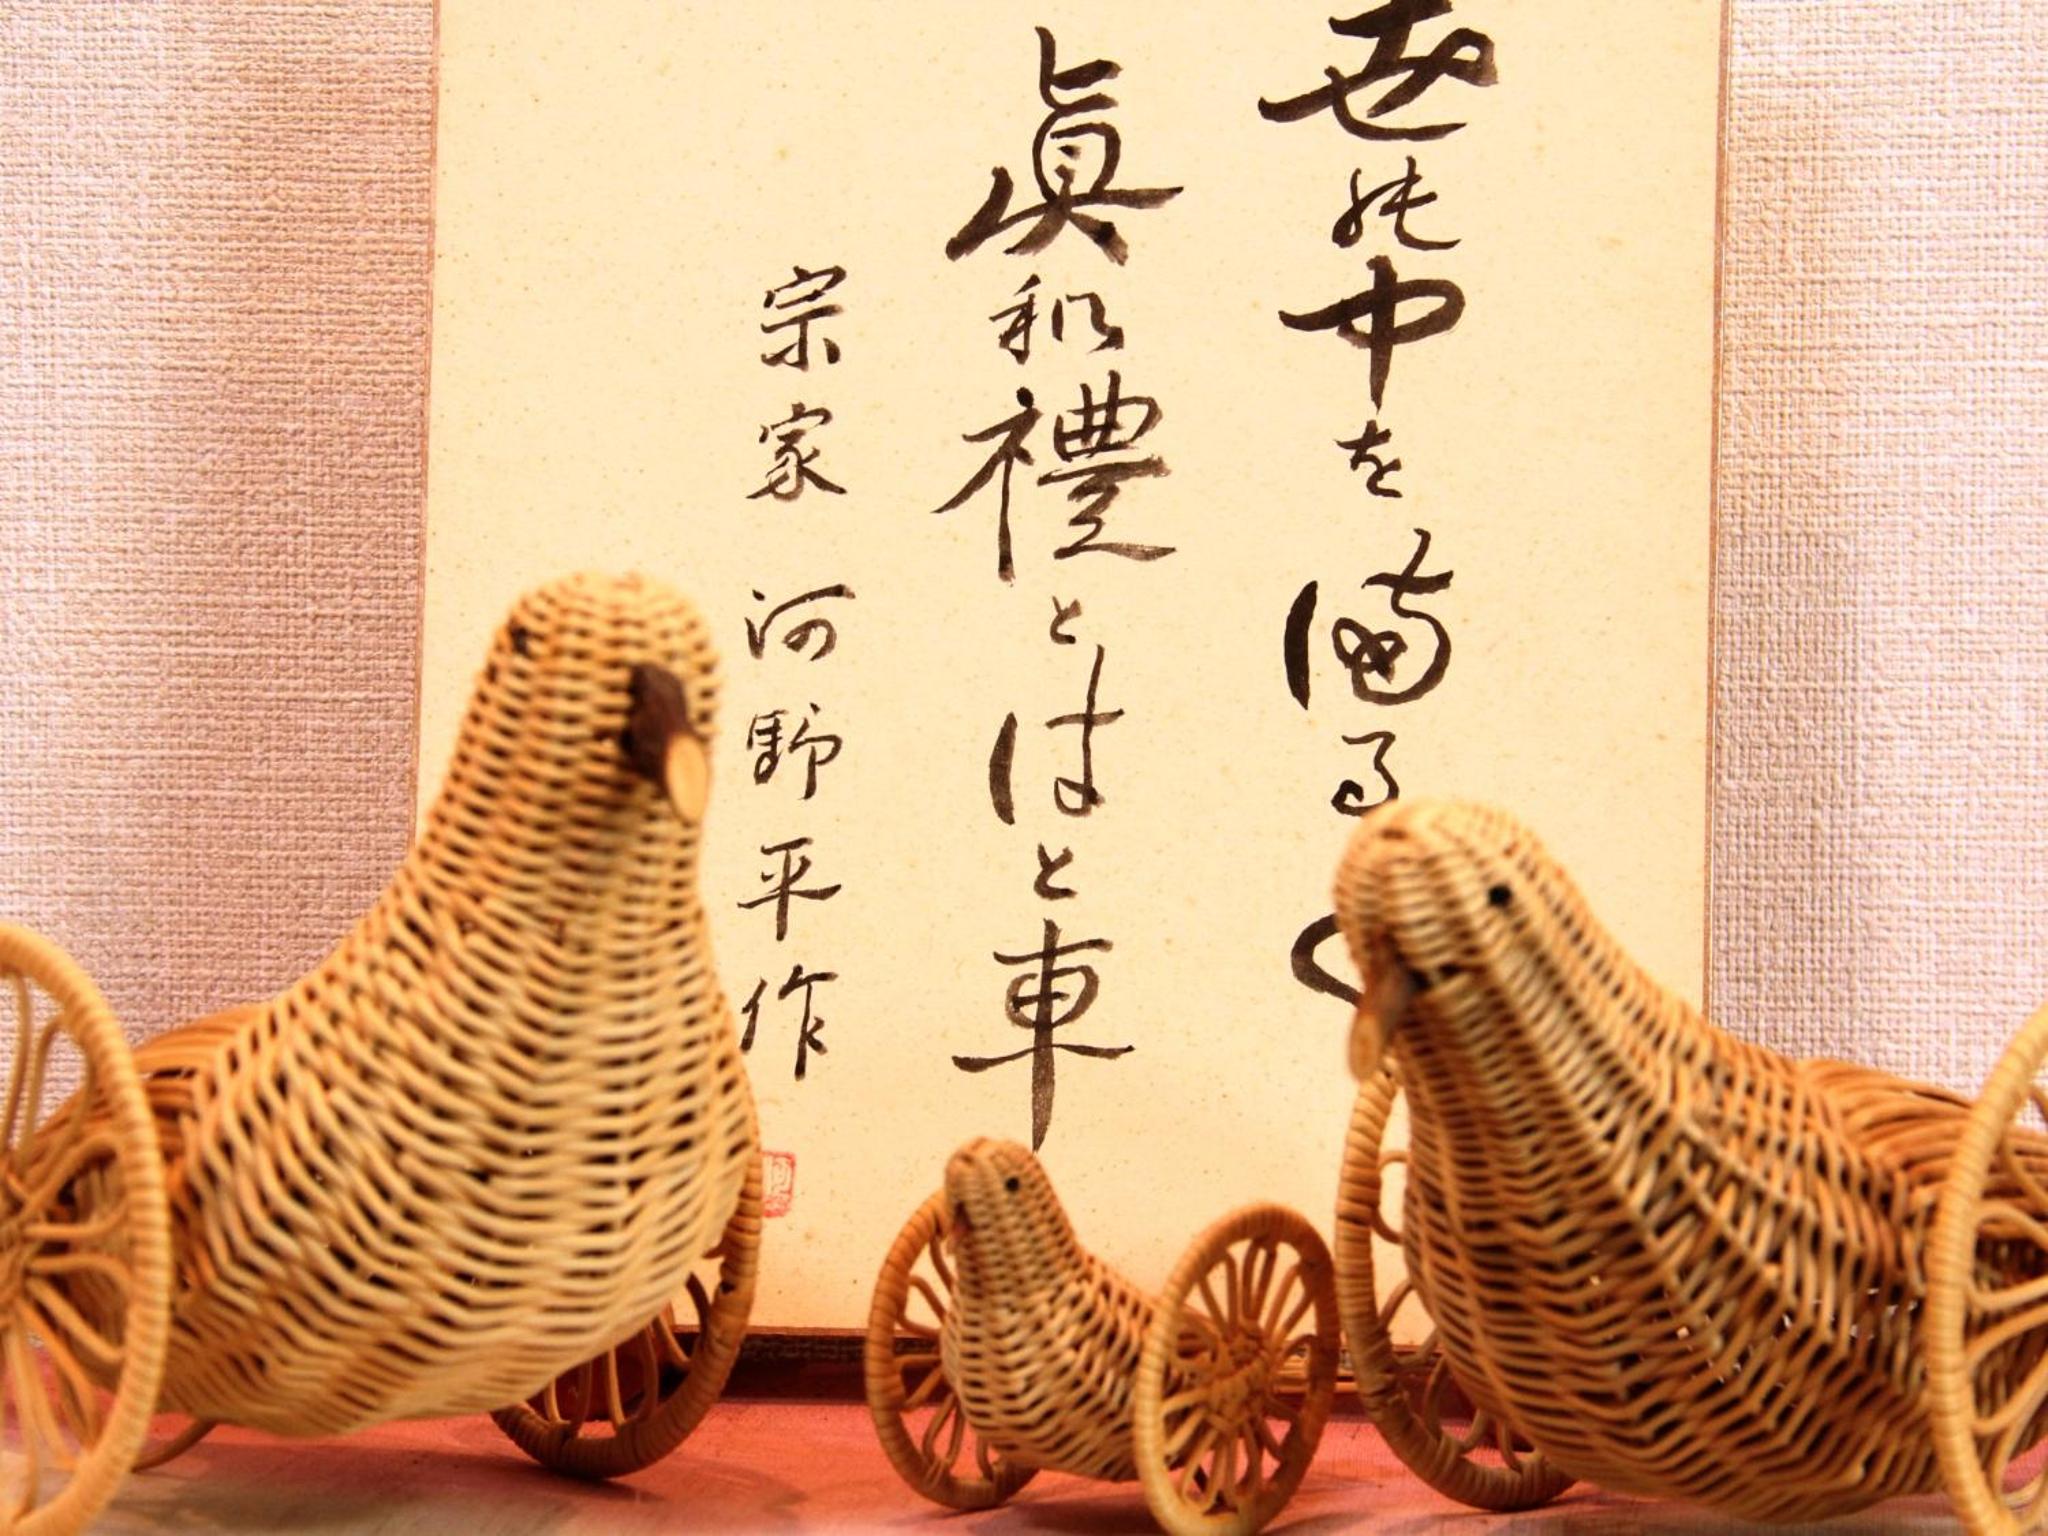 世能中を満るく
眞和禮とはと車
宗家 河野平作